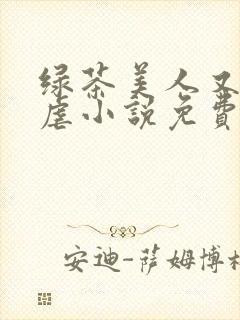 绿茶美人又
虐小說免費
安迪-萨姆博格